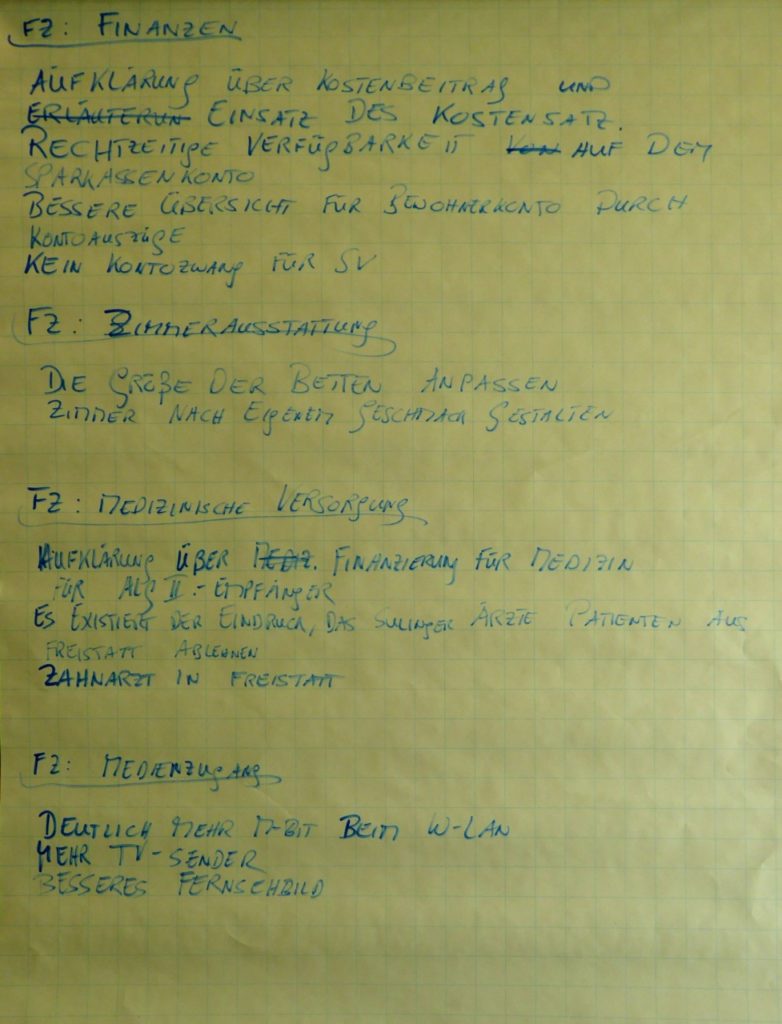 FZ: FINANZEN
AUFKLÄRUNG ÜBER KOSTENBEITRAG UND
ERLÄUTERUN EINSATZ DES KOSTENSATZ.
RECHTZEITIGE VERFÜGBARKEIT VON AUF DEM
SPARKASSENKONTO
BESSERE ÜBERSICHT FÜR BEWOHNERKONTO DURCH
KONTOAUSZÜGE
KEIN KONTOZWANG FÜR SV
FZ: ZIMMERAUSSTATTUNG
DIE GRÖßE DER BETTEN ANPASSEN
ZIMMER NACH EIGENEM GESCHMACK GESTALTEN
FZ: MEDIZINISCHE VERSORGUNG
AUFKLÄRUNG ÜBER MEDIZ. FINANZIERUNG FÜR MEDIZIN
FÜR ALG II.-EMPFÄNGER
ES EXISTIERT DER EINDRUCK, DAS SULINGER ÄRZTE PATIENTEN AUS
FREISTATT ABLEHNEN
ZAHNARZT IN FREISTATT
FZ: MEDIENZUGANG
DEUTLICH MEHR M-BIT BEIM W-LAN
MEHR TV-SENDER
BESSERES FERNSEHBILD